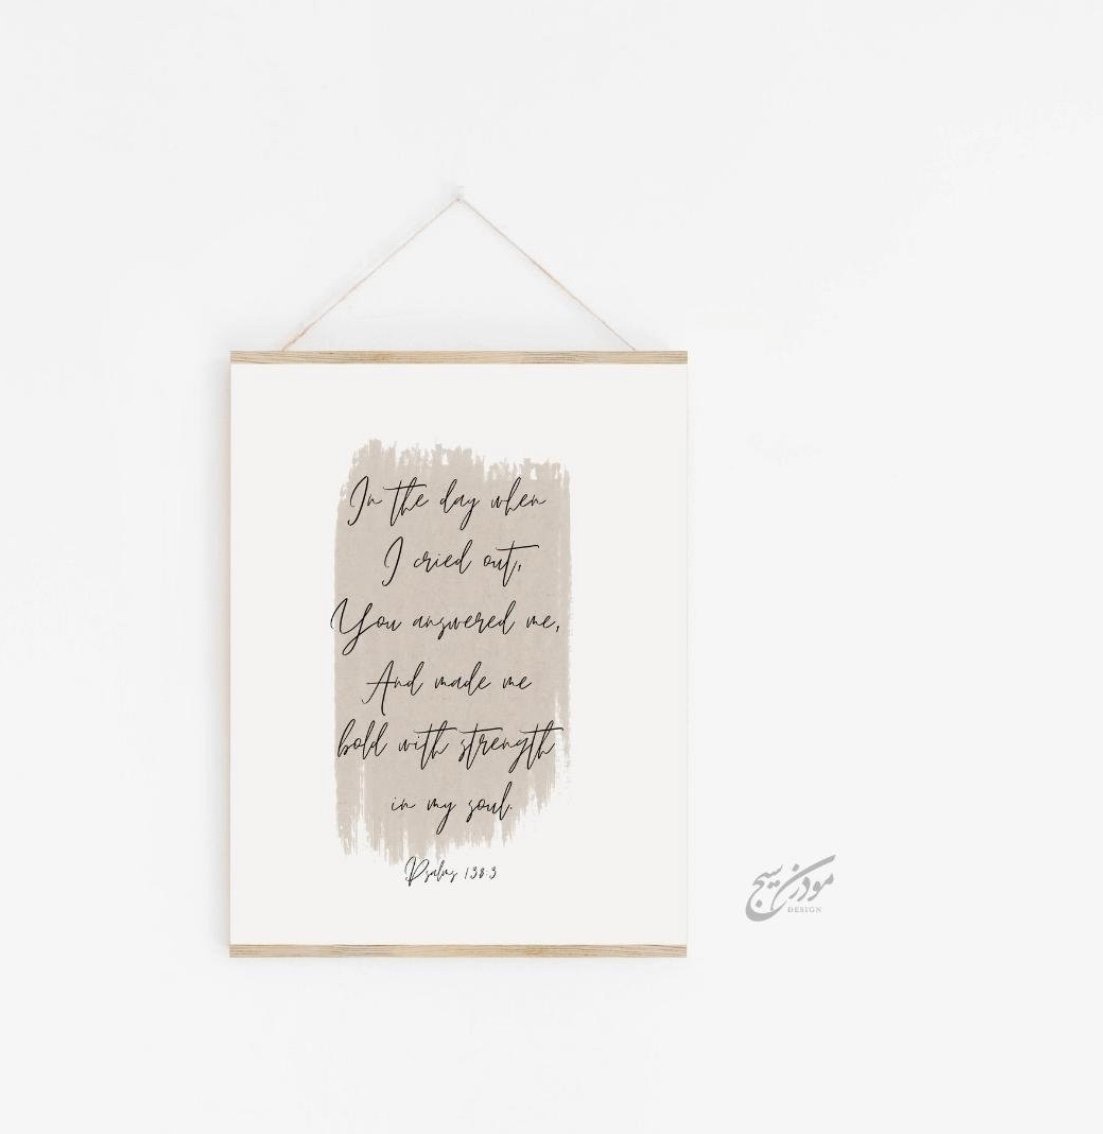 In the day when
I cried out,
You answered me,
And made me
bold with strength
in my soul.
Psalms 138:3
مودرن سيج
DESIGN